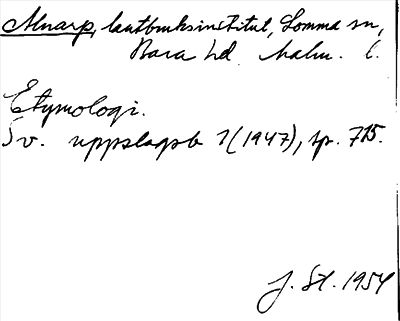 Alnarp, lantbruksinstitut, Lomma sn,
Bara hd. Malm. l.
Etymologi.
Sv. uppslagsb 1 (1947), sp. 715.
J. St. 1954